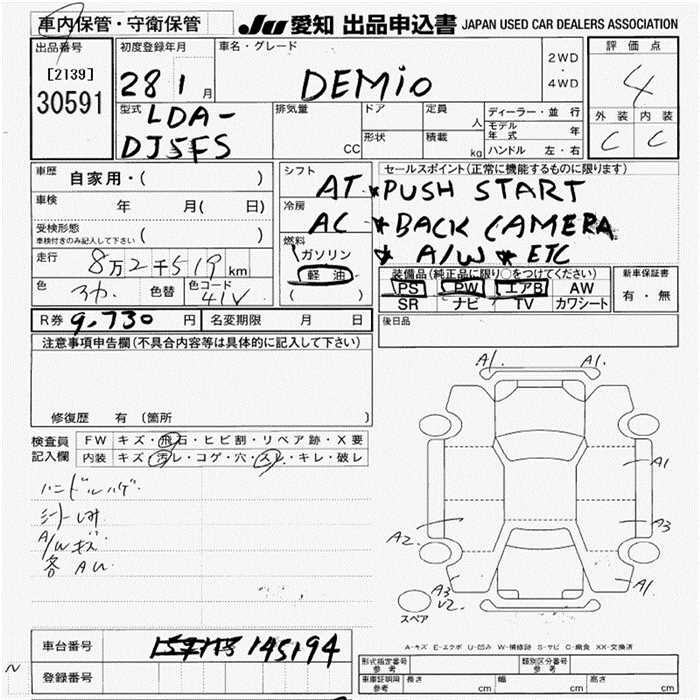 車内保管・守衛保管
JU 愛知 出品申込書 JAPAN USED CAR DEALERS ASSOCIATION
出品番号
[2139]
30591
初度登録年月
28 1 月
車名・グレード
DEMio
2WD
・
4WD
評価点
4
外装 内装
C C
型式 LDA-
DJ5FS
排気量
CC
ドア
形状
定員 人
積載 kg
ディーラー・並行
モデル年式 年
ハンドル 左・右
車歴 自家用・( )
車検 年 月( 日)
受検形態
車検付きのみ記入して下さい ( )
走行 8万2千519km
色 色替 色コード 41V
シフト AT
冷房 AC
燃料
ガソリン
軽油
( )
セールスポイント(正常に機能するものに限ります)
*PUSH START
*BACK CAMERA
* A/W * ETC
装備品(純正品に限り○をつけてください)
PS PW エアB AW
SR ナビ TV カワシート
新車保証書
有・無
R券 9,730 円 名変期限 月 日
後日品
注意事項申告欄(不具合内容等は具体的に記入して下さい)
修復歴 有 (箇所
検査員記入欄
FW キズ・飛石・ヒビ割・リペア跡・X要
内装 キズ・汚レ・コゲ・穴・スレ・キレ・破レ
ハンドルハゲ
A/Wキズ
各 AU
A1. A1.
A1
A2. A3
A3 A1.
U2.
スペア
A-キズ E-エクボ U-凹み W-補修跡 S-サビ C-腐食 XX-交換済
車台番号 145194
登録番号
形式指定番号 参考
類別区分番号 参考
車庫証明用 参考 長さ cm 幅 cm 高さ cm